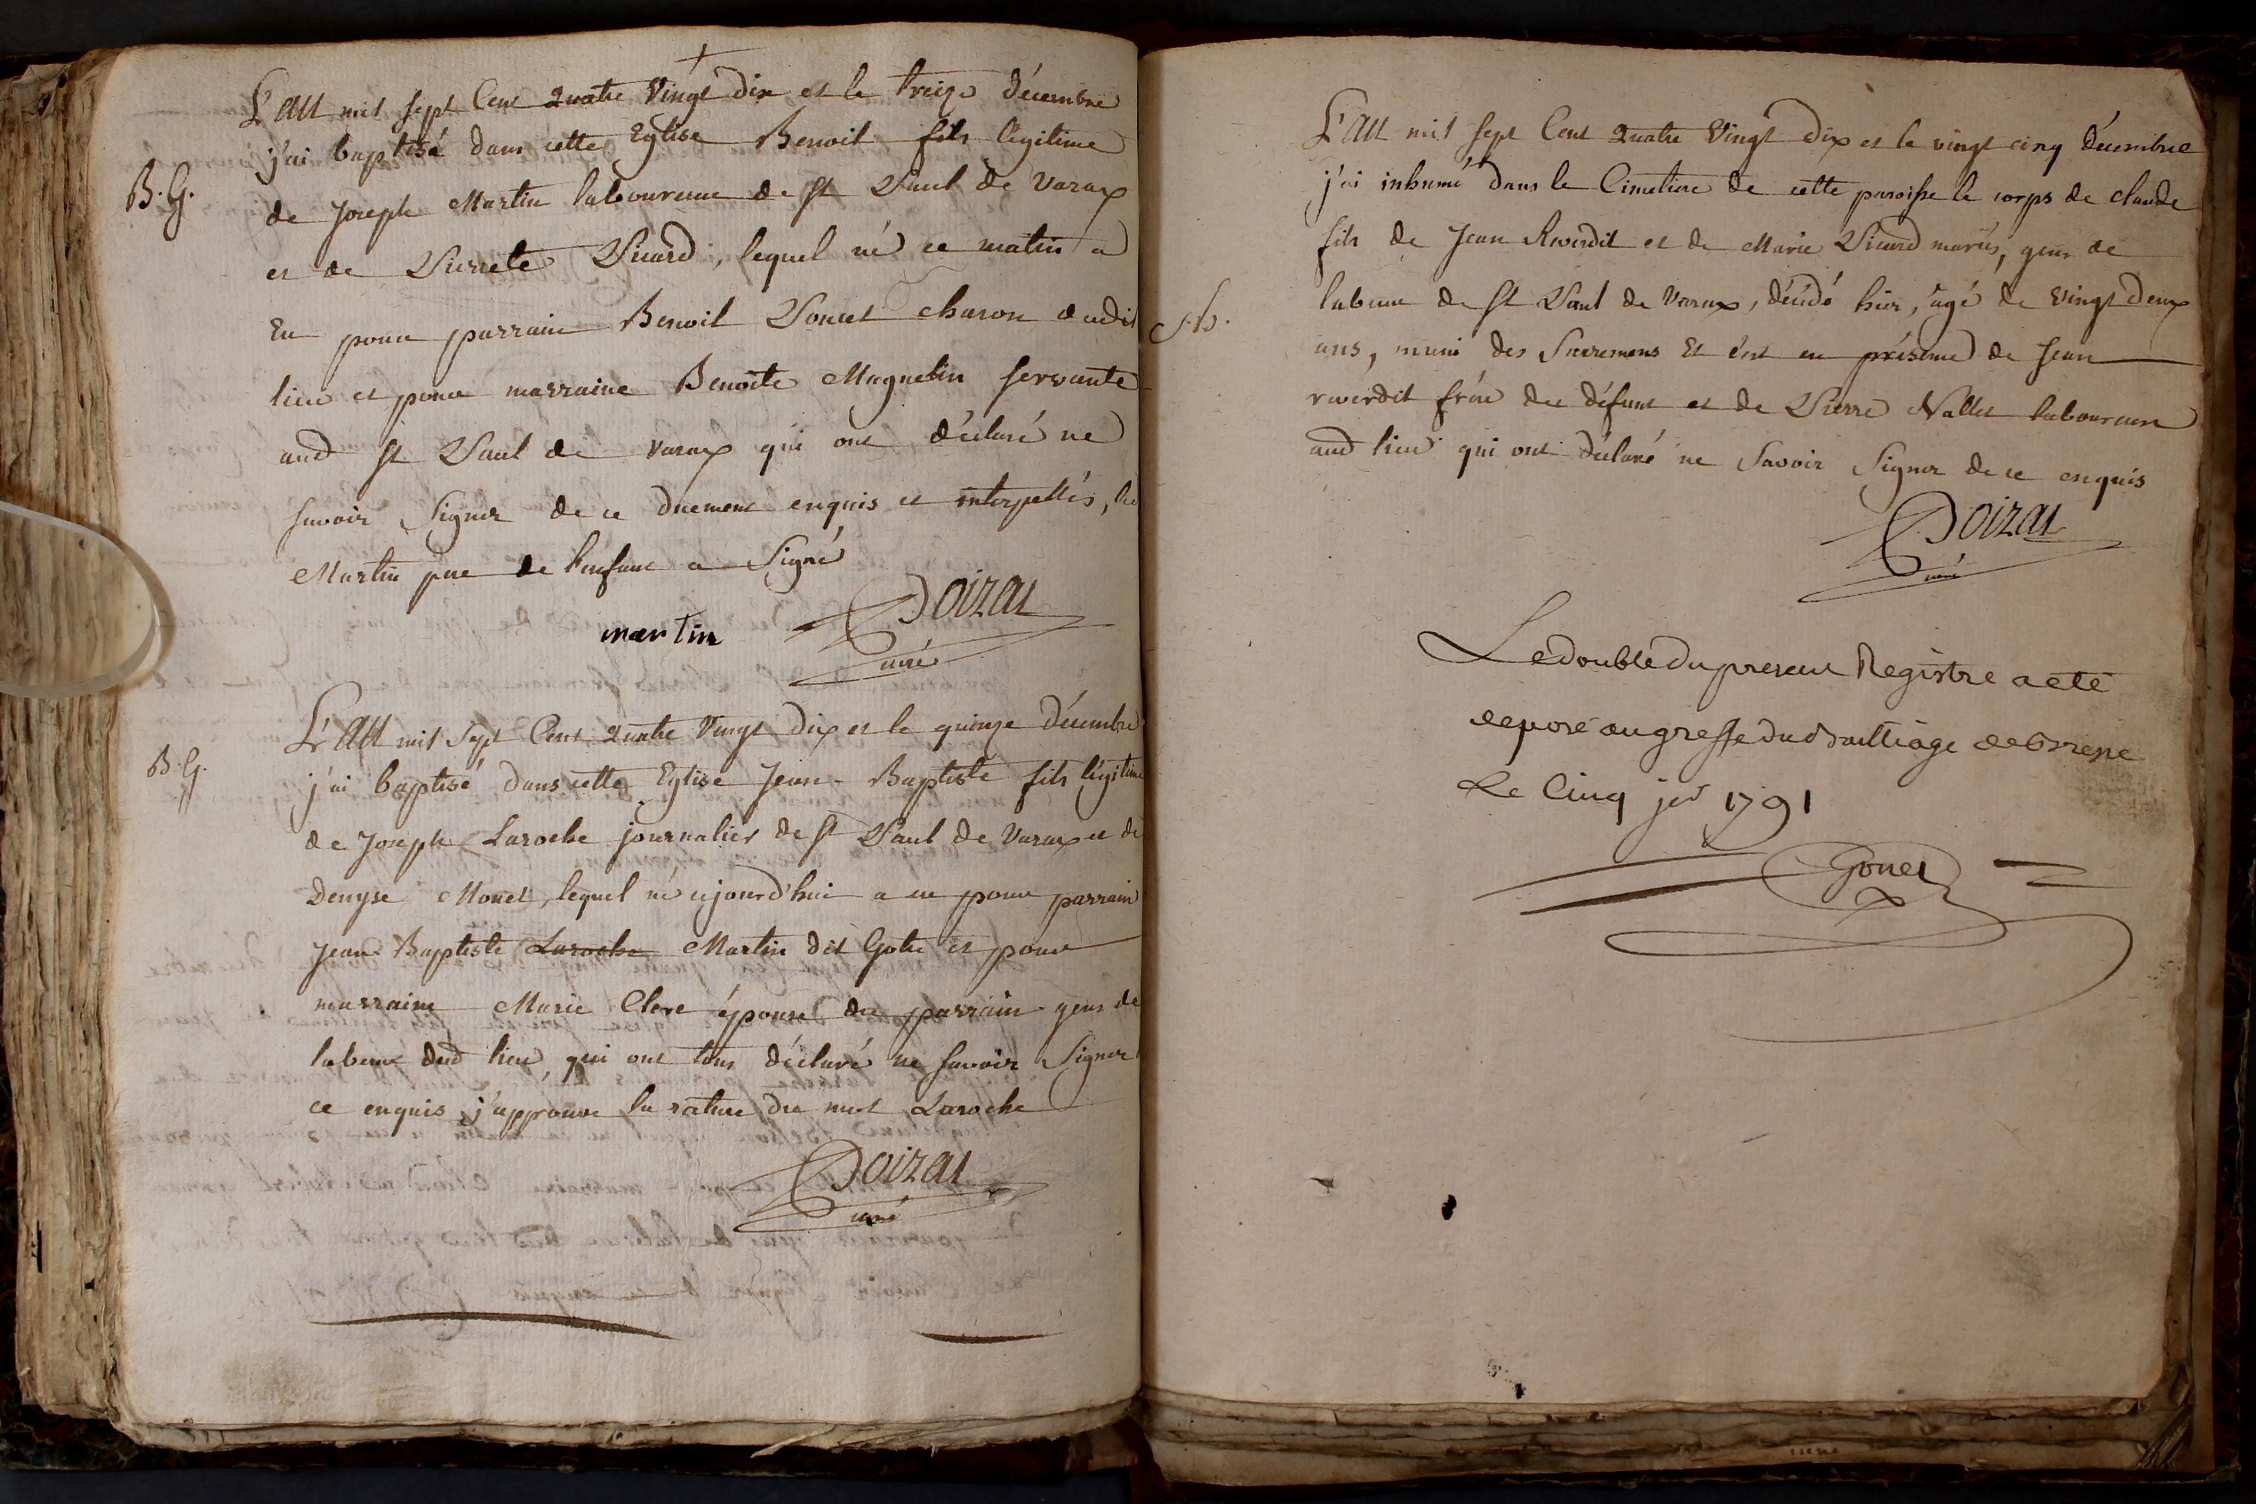 L'an mil sept Cent Quatre Vingt dix et le treize décembre
j'ai baptisé dans cette Eglise Benoit fils légitime
B. G.
de Joseph Martin laboureur de St Paul de Varax
et de Pierrete Picard, lequel né ce matin a
Eu pour parrain Benoit Poncet charon dudit
lieu et pour marraine Benoite Magnetin servante
aud St Paul de varax qui ont déclaré ne
savoir signer de ce duement enquis et interpellés, le
Martin pere de l'enfant a Signé
martin Doizat
curé
L'an mil Sept Cent Quatre Vingt dix et le quinze décembre
B. G.
j'ai baptisé dans cette Eglise Jean-Baptiste fils légitime
de Joseph Laroche journalier de St Paul de Varax et de
Denyse Monet, lequel né ajourd'hui a eu pour parrain
Jean Baptiste Laroche Martin dit Gotu et pour
marraine Marie Clere épouse du parrain gens de
labeur dud lieu, qui ont tous déclaré ne savoir Signer
ce enquis, j'approuve la rature du mot Laroche
Doizat
curé
L'an mil sept Cent Quatre Vingt dix et le vingt cinq décembre
j'ai inhumé dans le Cimetiere de cette paroisse le corps de claude
fils de Jean Reverdit et de Marie Picard mariés, gens de
labeur de St Paul de Varax, décédé hier, âgé de Vingt deux
ans, muni des Sacremens Et c'est en présence de Jean
reverdit frére du défunt et de Pierre Nallet laboureur
aud lieu qui ont déclaré ne Savoir Signer de ce enquis
Doizat
curé
Le double du present Registre a eté
deposé au greffe du Bailliage de Bresse
Le Cinq jer 1791
Gonet